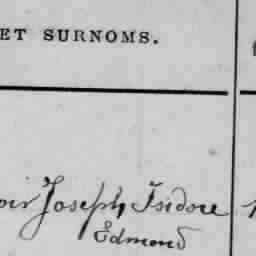 ET SURNOMS.
Joseph Isidore
Edmond